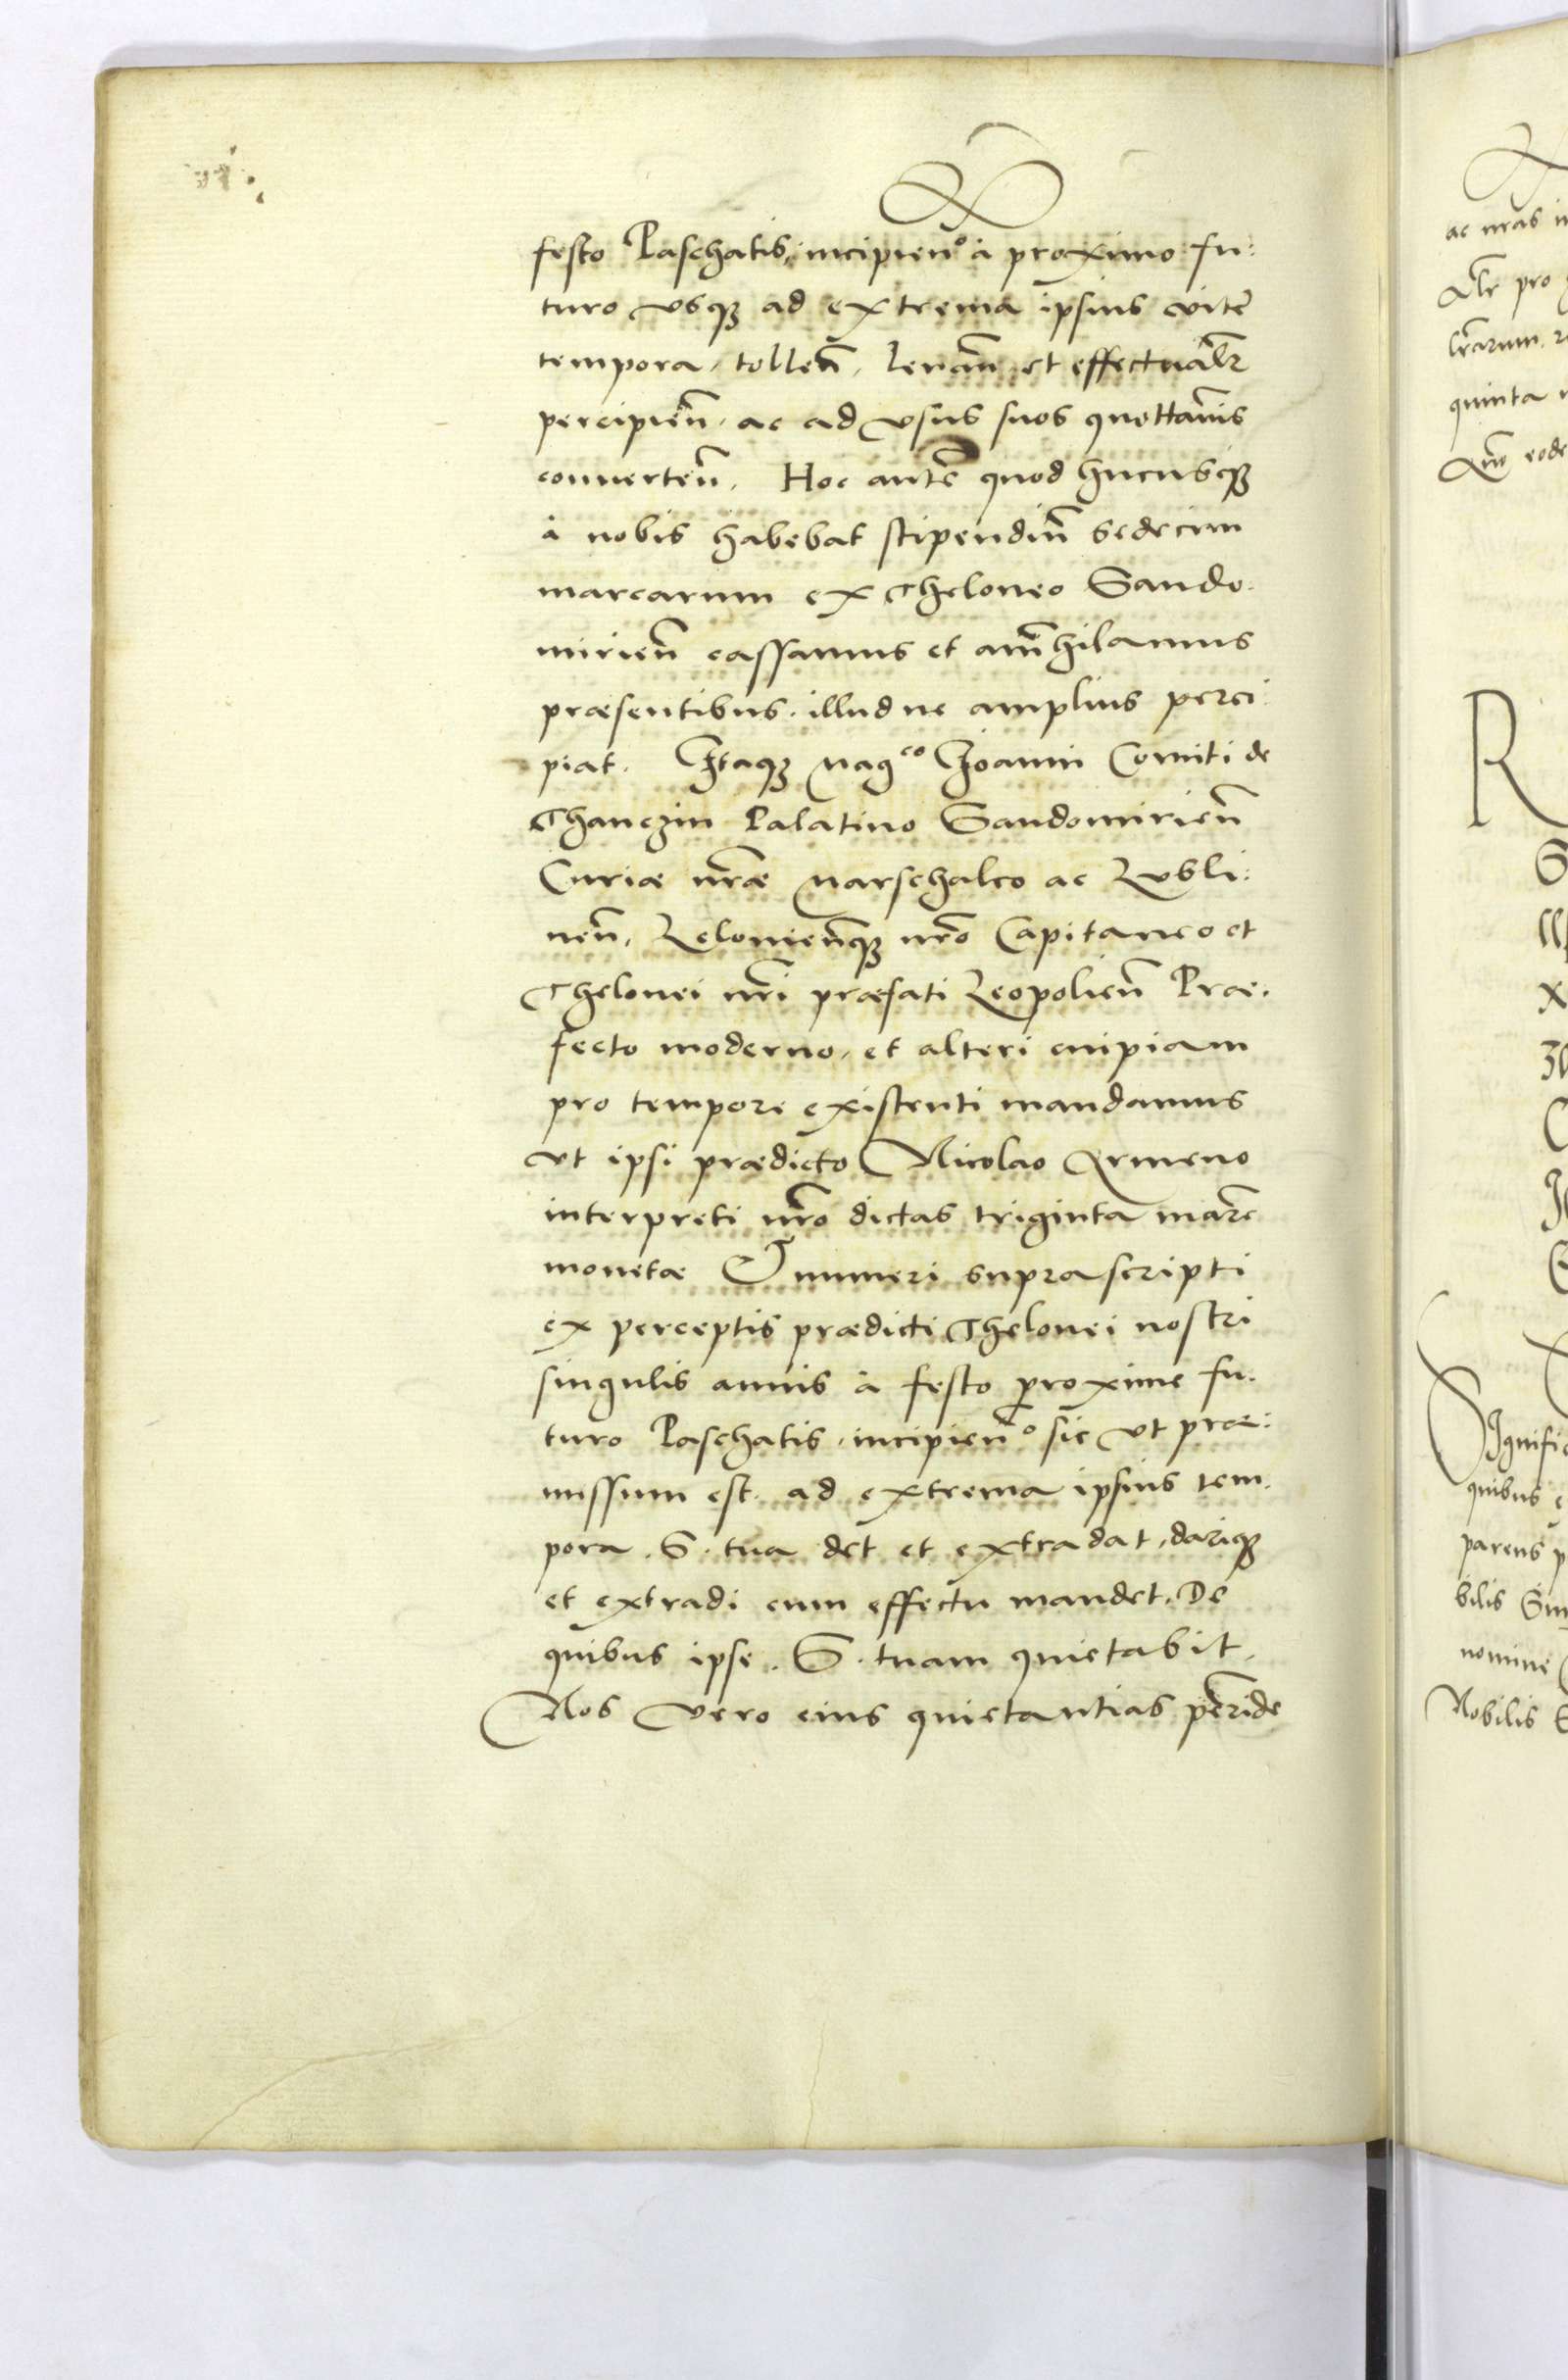 festo Paschatis, incipien̄º à proximo fu:
turo vsq̃ ad extrema ipsius vite
tempora, tollen̄, leuan̄ et effectualr̄
percipien̄, ac ad vsus suos quottannis
conuerten̄. Hoc autē quod hucusq̃
à nobis habebat stipendiū sedecim
marcarum ex Theloneo Sando.
mirien̄ cassamus et annihilamus
præsentibus, illud ne amplius perci:
piat. Itaq̃ Magᶜᵒ Joanni Comiti de
Thanczin Palatino Sandomirien̄
Curiæ nr̄æ Marschalco ac Lubli:
nen̄, Zelonien̄q̃ nr̄o Capitaneo et
Thelonei nr̄i præfati Leopolien̄ Præ.
fecto moderno, et alteri cuipiam
pro tempore existenti mandamus
vt ipsi prædicto Nicolao Armeno
interpreti nr̄o dictas triginta marc̄
monetæ & numeri suprascripti
ex perceptis prædicti Thelonei nostri
singulis annis à festo proxime fu.
turo Paschatis, incipien̄º sic vt præ:
missum est, ad extrema ipsius tem.
pora. S. tua det et extradat, dariq̃
et extradi cum effectu mandet. De
quibus ipse. S. tuam quietabit.
Nos vero eius quietantias perinde
ac nr̄as
Alr̄ pro
lr̄arum
quinta
eode
R
S
Signific
quibus
parens
bilis
nomine
Nobilis